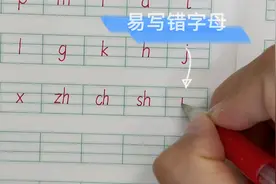 易写错字母
l g k h j
x zh ch sh